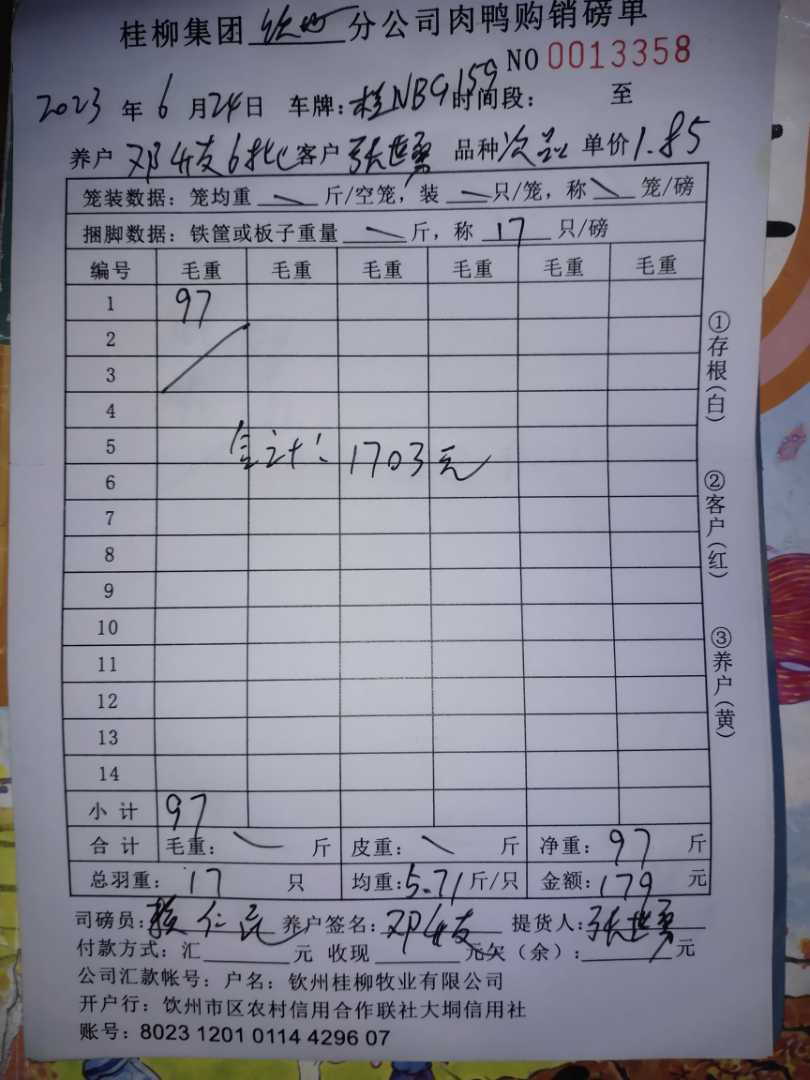 桂柳集团 钦州 分公司肉鸭购销磅单
NO 0013358
2023 年 6 月 24 日 车牌：桂NBG159 时间段： 至
养户 邓 支6批 客户 张世勇 品种 次品 单价 1.85
笼装数据：笼均重 斤/空笼，装 只/笼，称 笼/磅
捆脚数据：铁筐或板子重量 斤，称 17 只/磅
编号 毛重 毛重 毛重 毛重 毛重 毛重
1 97
2
3
4
5
合计：1703元
6
7
8
9
10
11
12
13
14
小 计 97
合 计 毛重： 斤 皮重： 斤 净重：97 斤
总羽重：17 只 均重：5.71 斤/只 金额：179 元
司磅员：赖仁 养户签名：邓 支 提货人：张世勇
付款方式：汇 元 收现 元欠（余）： 元
公司汇款帐号：户名：钦州桂柳牧业有限公司
开户行：钦州市区农村信用合作联社大垌信用社
账号：8023 1201 0114 4296 07
①存根（白）
②客户（红）
③养户（黄）